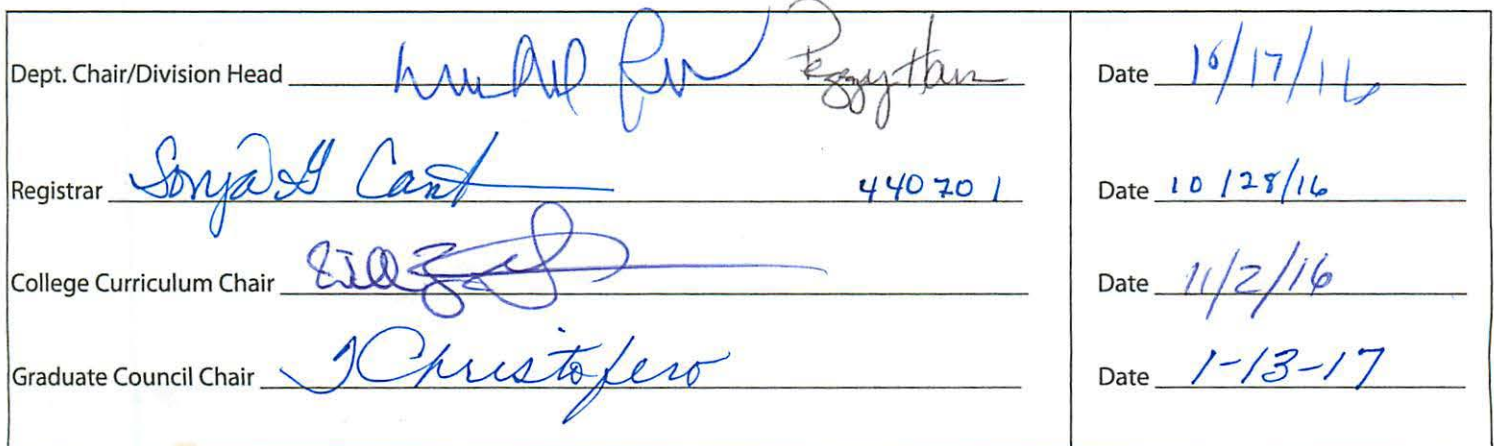 Dept. Chair/Division Head Peggy Date 10/17/16
Registrar Sonja G Cant 440701 Date 10/28/16
College Curriculum Chair Date 11/2/16
Graduate Council Chair TChristofero Date 1-13-17